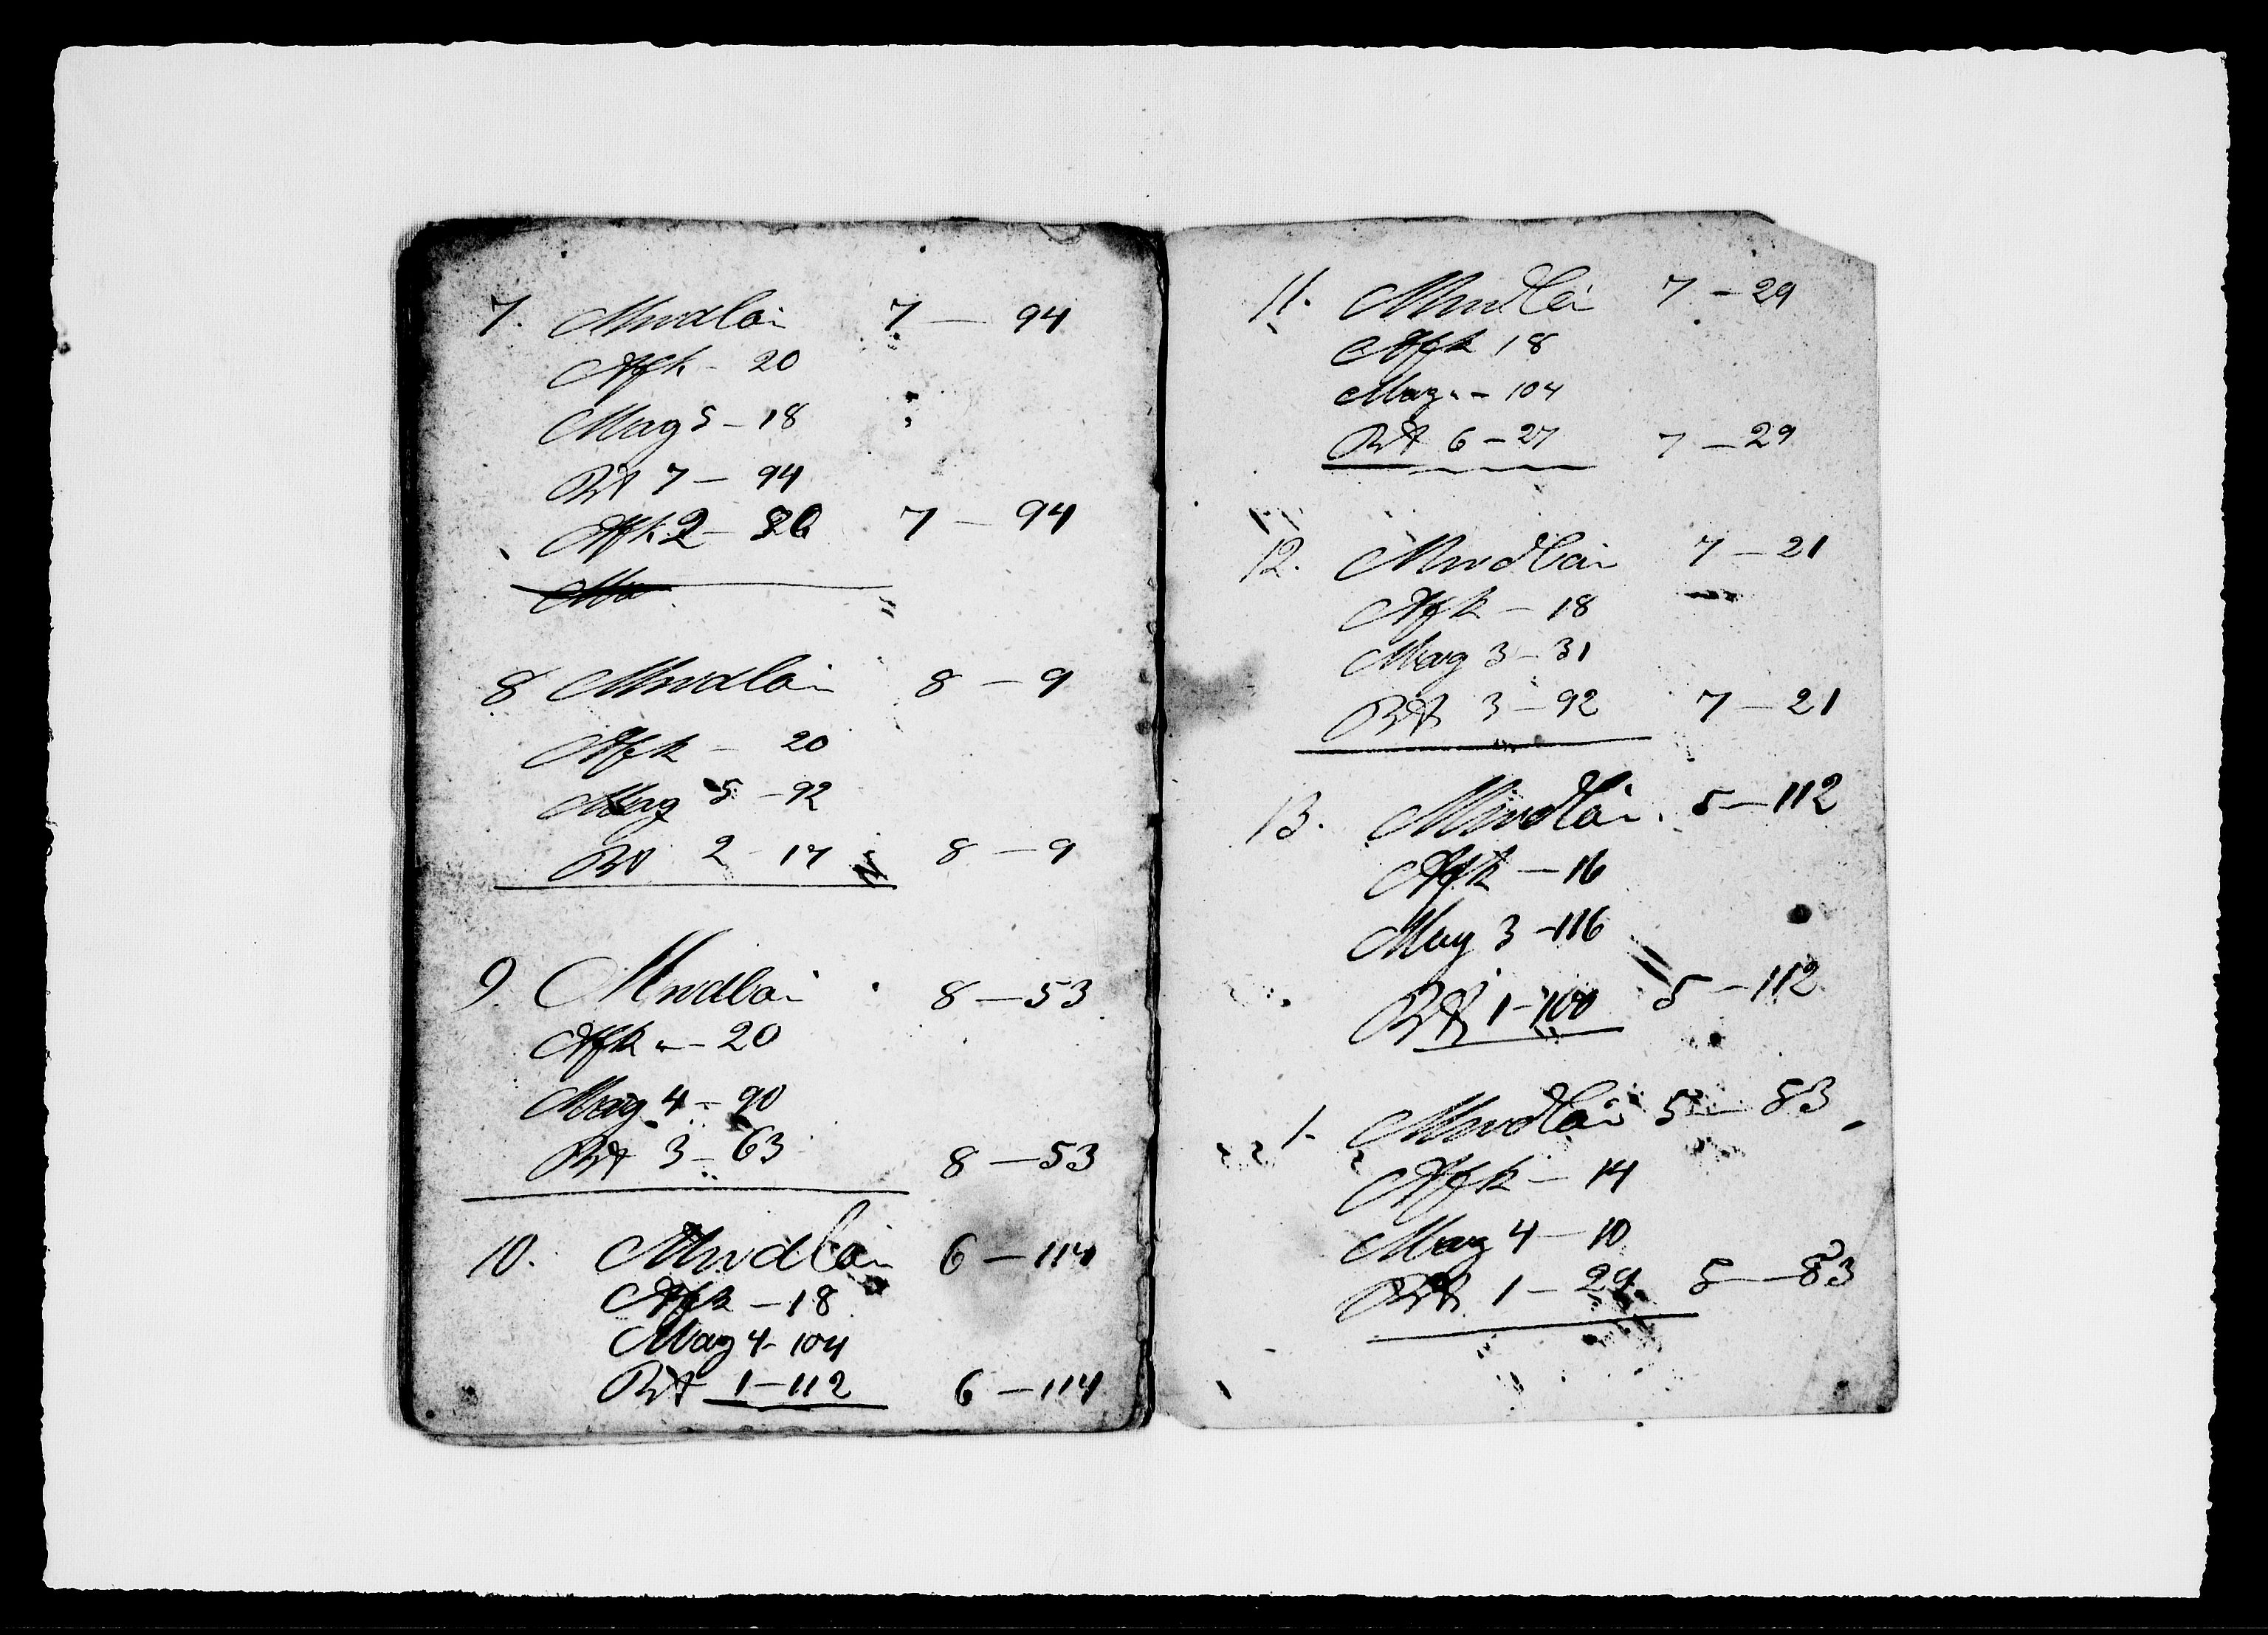 7. Mundlai 7 — 94
Afk - 20
Mag 5 - 18
Rst 7 — 94
Afk 2 - 36 7 — 94
8 Mundlai 8 — 9
Afk — 20
Mag 5 - 92
Rst 2 - 17 8 — 9
9. Mundlai 8 — 53
Afk " — 20
Mag 4 - 90
Rst 3 - 63 8 — 53
10. Mundlai 6 — 114
Afk — 18
Mag 4 - 104
Rst 1 — 112 6 — 114
11. Mundlai 7 — 29
Afk 18
Mag " - 104
Rst 6 - 27 7 — 29
12. Mundlai 7 — 21
Afk — 18
Mag 3 - 31
Rst 3 - 92 7 — 21
13. Mundlai 5 — 112
Afk — 16
Mag 3 - 116
Rst 1 - 100 5 — 112
1. Mundlai 5 — 83
Afk — 14
Mag 4 — 10
Rst 1 — 29 5 — 83